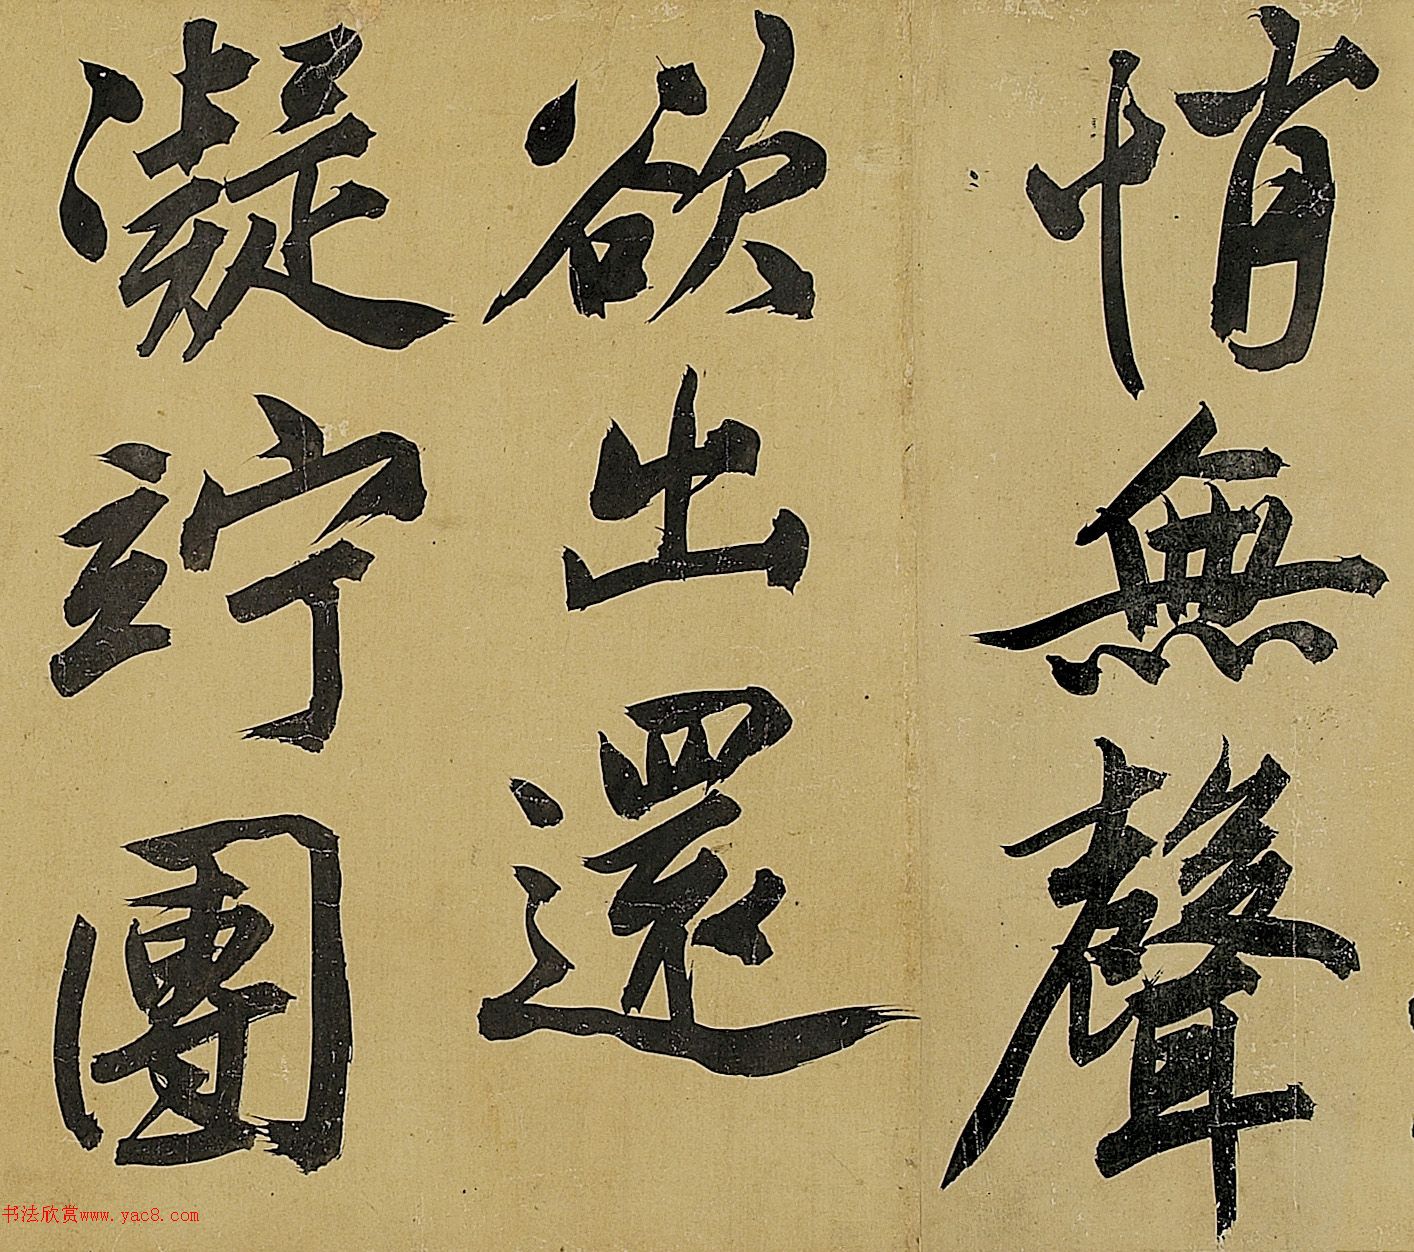 悄無聲
欲出還
凝竚團
书法欣赏www.yac8.com